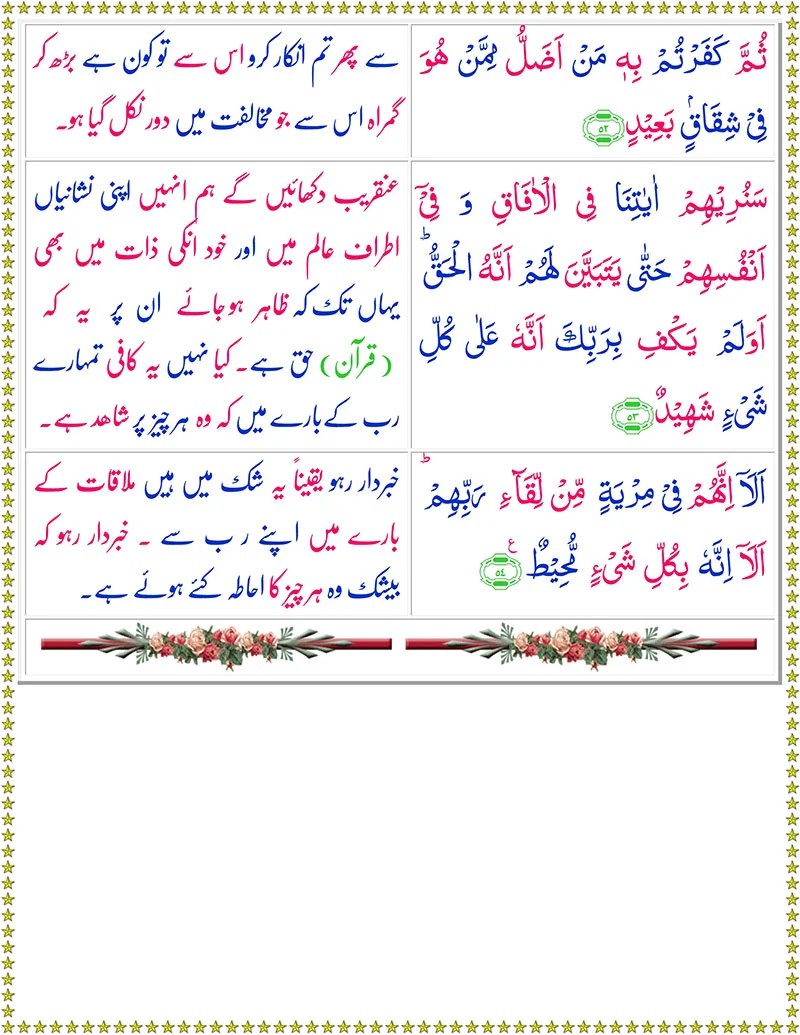 ثُمَّ كَفَرْتُمْ بِهٖ مَنْ اَضَلُّ مِمَّنْ هُوَ
فِیْ شِقَاقٍۭ بَعِیْدٍ ۵۲
سے پھر تم انکار کرو اس سے تو کون ہے بڑھ کر
گمراہ اس سے جو مخالفت میں دور نکل گیا ہو۔
سَنُرِیْهِمْ اٰیٰتِنَا فِی الْاٰفَاقِ وَ فِیْۤ
اَنْفُسِهِمْ حَتّٰی یَتَبَیَّنَ لَهُمْ اَنَّهُ الْحَقُّ ؕ
اَوَلَمْ یَكْفِ بِرَبِّكَ اَنَّهٗ عَلٰی كُلِّ
شَیْءٍ شَهِیْدٌ ۵۳
عنقریب دکھائیں گے ہم انہیں اپنی نشانیاں
اطراف عالم میں اور خود انکی ذات میں بھی
یہاں تک کہ ظاہر ہو جائے ان پر یہ کہ
(قرآن) حق ہے۔ کیا نہیں یہ کافی تمہارے
رب کے بارے میں کہ وہ ہر چیز پر شاھد ہے۔
اَلَاۤ اِنَّهُمْ فِیْ مِرْیَةٍ مِّنْ لِّقَآءِ رَبِّهِمْ ؕ
اَلَاۤ اِنَّهٗ بِكُلِّ شَیْءٍ مُّحِیْطٌ ۵۴ ع
خبردار رہو یقیناً یہ شک میں ہیں ملاقات کے
بارے میں اپنے رب سے ۔ خبردار رہو کہ
بیشک وہ ہر چیز کا احاطہ کئے ہوئے ہے۔